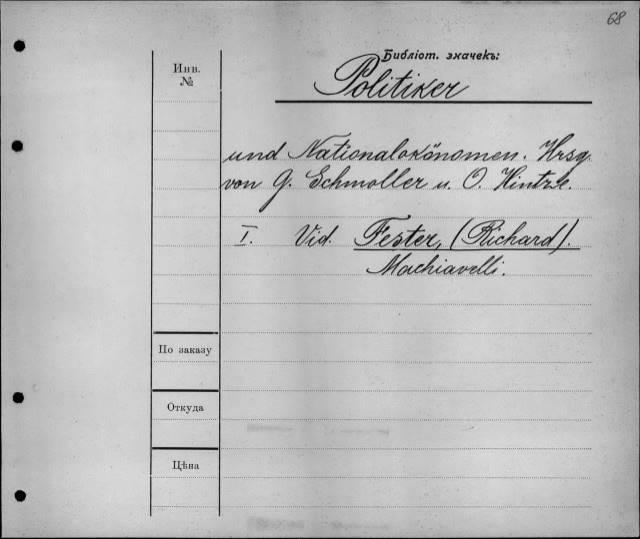 68
Библіот. значекъ:
Инв.
№
Politiker
und Nationalokönomen. Hrsg.
von G. Schmoller u. O. Hintze.
I. Vid. Fester, (Richard).
Machiavelli.
По заказу
Откуда
Цѣна